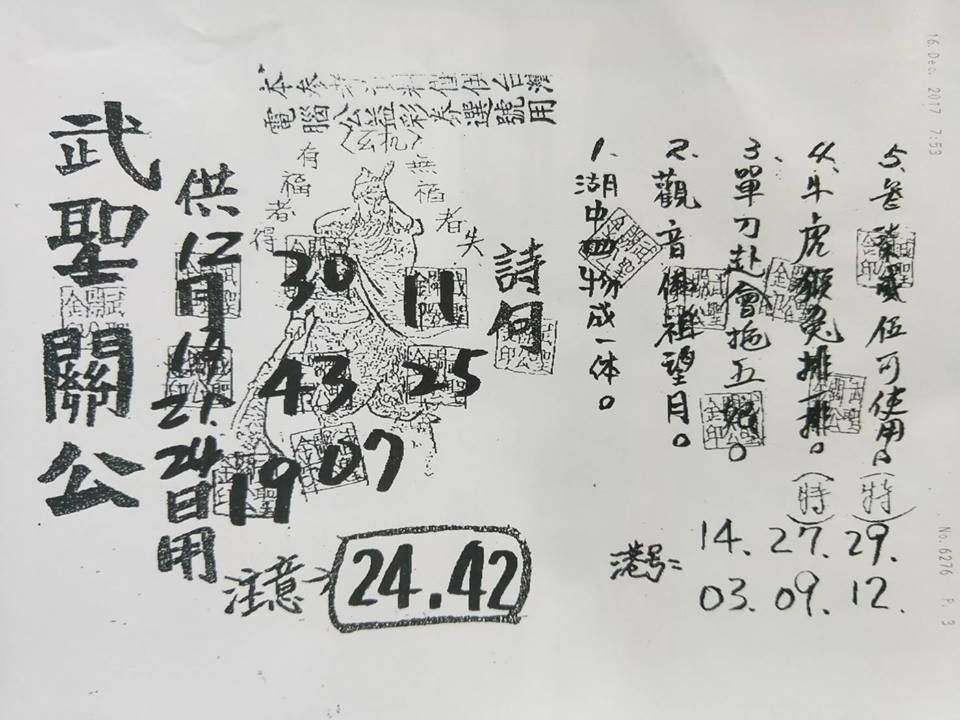 本參考資料僅供台灣
電腦公益彩券選號用
〈玄机〉
有福者得
無福者失
武聖關公
供12月19.21.24日用
30
11
43
25
19
07
注意
24.42
詩句
1.湖中四物成一体。
2.觀音佛祖望月。
3.單刀赴會拖五
4.牛虎猴兔排一排。(特)
5.伍可使用。(特)
港号=
14.27.29.
03.09.12.
16.Dec. 2017 7:53
No.6276 P. 3